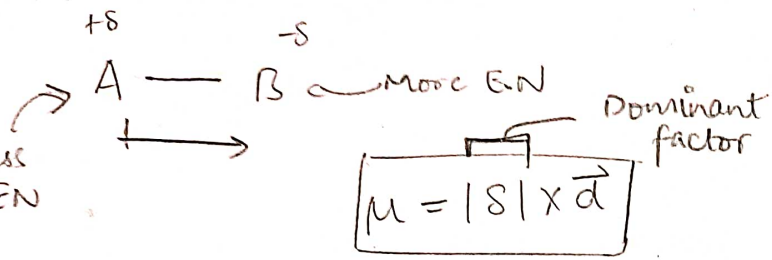 +δ
-δ
A — B
More E.N
ss
EN
Dominant
factor
μ = |δ| × d⃗